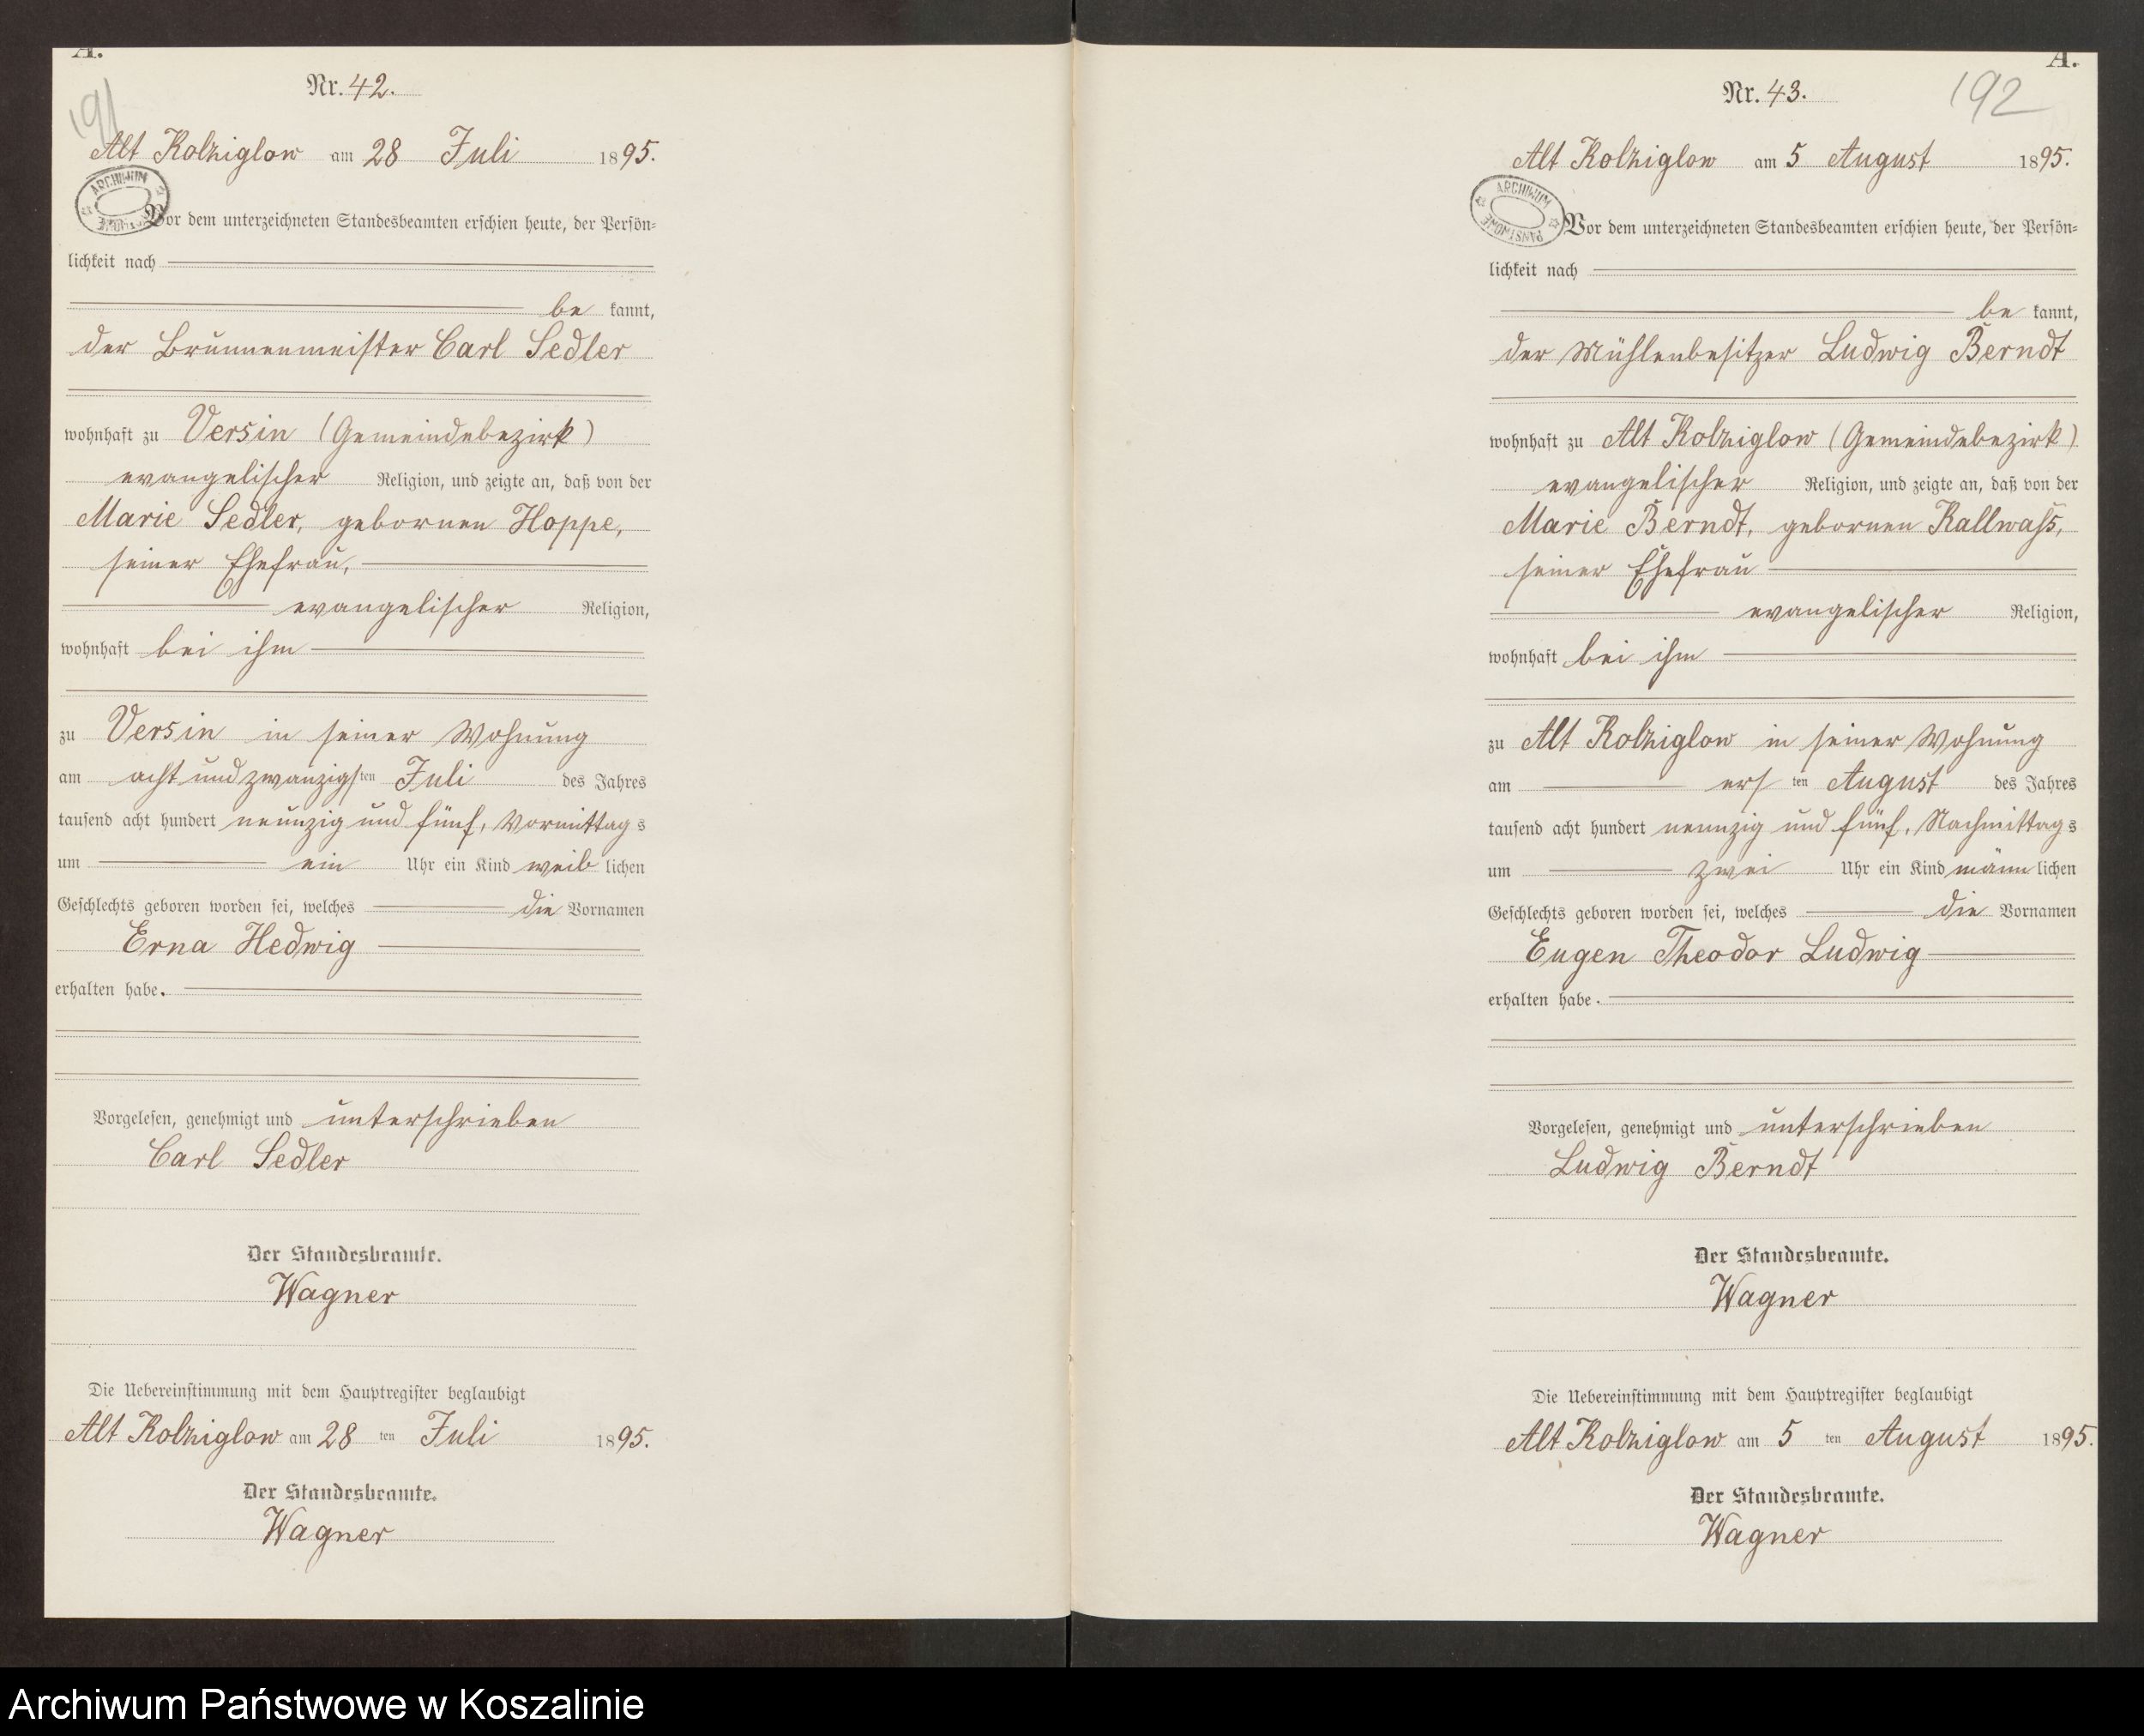 A.
Nr. 42.
191
Alt Kolziglow am 28 Juli 1895.
ARCHIWUM
Vor dem unterzeichneten Standesbeamten erschien heute, der Persön=
lichkeit nach
be kannt,
der Brunnenmeister Carl Sedler
wohnhaft zu Versin (Gemeindebezirk)
evangelischer Religion, und zeigte an, daß von der
Marie Sedler, gebornen Hoppe,
seiner Ehefrau,
evangelischer Religion,
wohnhaft bei ihm
zu Versin in seiner Wohnung
am acht und zwanzigsten Juli des Jahres
tausend acht hundert neunzig und fünf, Vormittags
um ein Uhr ein Kind weiblichen
Geschlechts geboren worden sei, welches die Vornamen
Erna Hedwig
erhalten habe.
Vorgelesen, genehmigt und unterschrieben
Carl Sedler
Der Standesbeamte.
Wagner
Die Uebereinstimmung mit dem Hauptregister beglaubigt
Alt Kolziglow am 28 ten Juli 1895.
Der Standesbeamte.
Wagner
A.
Nr. 43.
192
Alt Kolziglow am 5 August 1895.
ARCHIWUM PAŃSTWOWE
Vor dem unterzeichneten Standesbeamten erschien heute, der Persön=
lichkeit nach
be kannt,
der Mühlenbesitzer Ludwig Berndt
wohnhaft zu Alt Kolziglow (Gemeindebezirk)
evangelischer Religion, und zeigte an, daß von der
Marie Berndt, gebornen Kallwaß,
seiner Ehefrau
evangelischer Religion,
wohnhaft bei ihm
zu Alt Kolziglow in seiner Wohnung
am ersten August des Jahres
tausend acht hundert neunzig und fünf, Nachmittags
um zwei Uhr ein Kind männlichen
Geschlechts geboren worden sei, welches die Vornamen
Eugen Theodor Ludwig
erhalten habe.
Vorgelesen, genehmigt und unterschrieben
Ludwig Berndt
Der Standesbeamte.
Wagner
Die Uebereinstimmung mit dem Hauptregister beglaubigt
Alt Kolziglow am 5 ten August 1895.
Der Standesbeamte.
Wagner
Archiwum Państwowe w Koszalinie